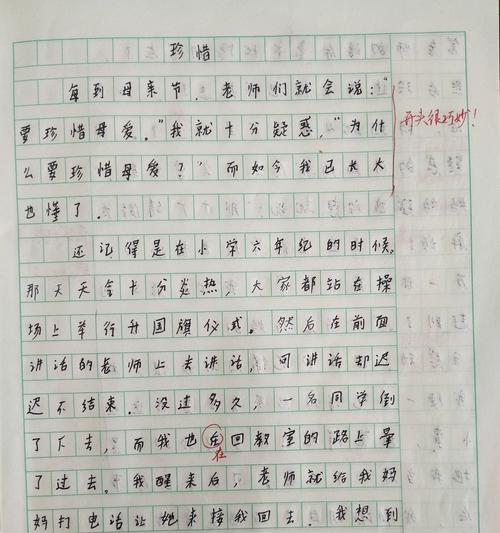 珍惜
每到母亲节，老师们就会说：“
要珍惜母爱。”我就十分疑惑，“为什
么要珍惜母爱？”而如今我已长大
也懂了．
开头很巧妙！
还记得是在小学六年纪的时候，
那天天会十分炎热，大家都站在操
场上举行升国旗仪式．然后在前面
讲话的老师上去讲话，可讲话却迟
迟不结束．没过多久，一名同学倒
了下去，而我也在回教室的路上晕
在
了过去．我醒来后，老师就给我妈
妈打电话让她来接我回去．我想到